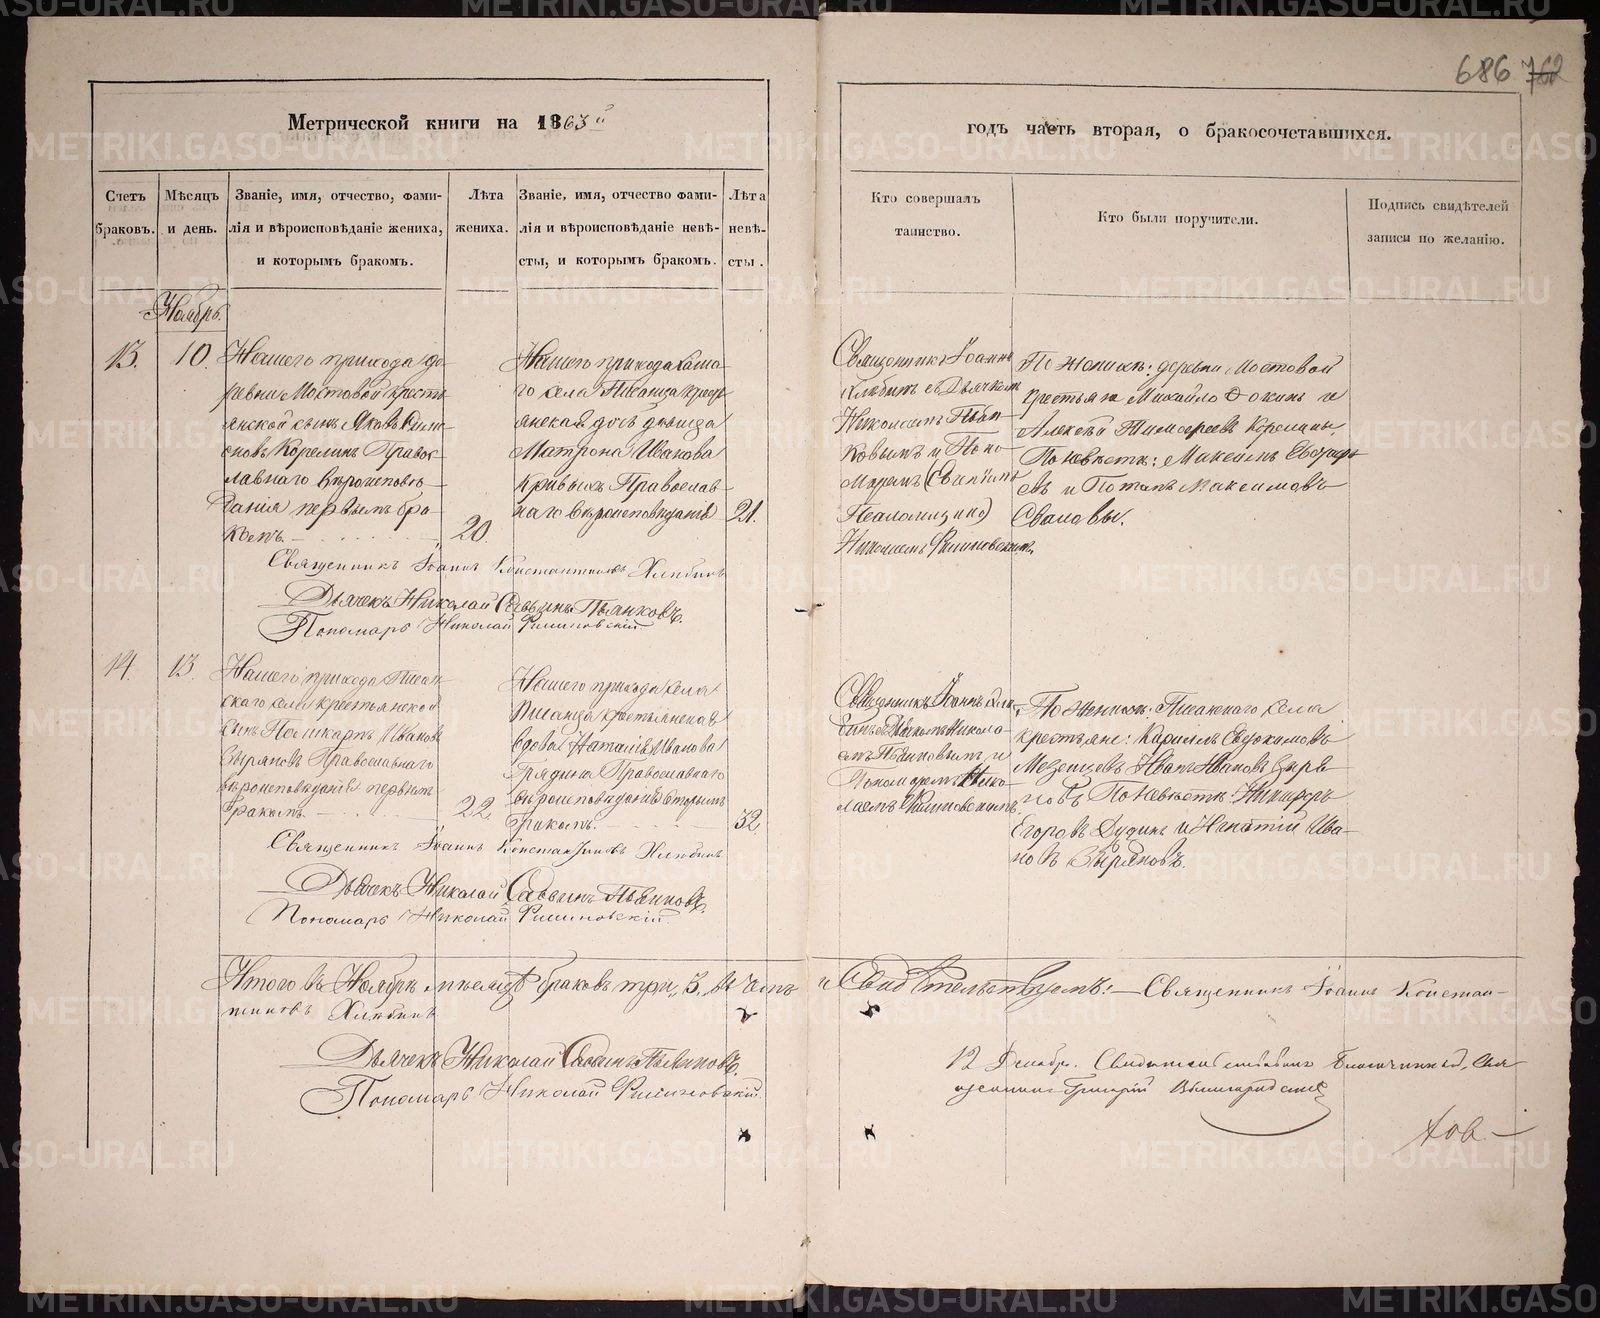 686 762
Метрической книги на 1863й
годъ часть вторая, о бракосочетавшихся.
Счетъ браковъ.
Мѣсяцъ и день.
Званіе, имя, отчество, фами-
лія и вѣроисповѣданіе жениха,
и которымъ бракомъ.
Лѣта
жениха.
Званіе, имя, отчество фами-
лія и вѣроисповѣданіе невѣ-
сты, и которымъ бракомъ.
Лѣта
невѣ-
сты.
Кто совершалъ
таинство.
Кто были поручители.
Подпись свидѣтелей
записи по желанію.
Ноябрь.
13. 10.
Нашего прихода де-
ревни Мостовой кресть
янской сынъ Яковъ
Корелинъ Правос
лавнаго вѣроисповѣ-
данія первымъ бра
комъ.
20.
Нашего прихода
го села Писанца крест
янская дочь девица
Матрона Иванова
Кривыхъ Православ
наго вѣроисповѣданія
21.
Священникъ Іоаннъ
Хлѣбинъ съ Дьячкомъ
Николаемъ Пьян-
ковымъ и Поно
маремъ
Николаемъ
По женихѣ: деревни Мостовой
крестьяна Михайло Фокинъ и
Алексѣй Тимофеевъ Корелины,
По невѣстѣ: Михеймъ
и Потапъ Максимовъ
Священникъ Іоаннъ Константиновъ Хлѣбинъ
Дьячекъ Николай Саввинъ Пьянковъ.
Пономарь Николай
14. 13.
Нашего прихода Писан
скаго села крестьянской
сынъ Иванов
Зыряновъ Православнаго
вѣроисповѣданія первымъ
бракомъ.
22.
Нашего прихода села
Писанца крестьянская
вдова Наталія Иванова
Грядина Православнаго
вѣроисповѣданія вторымъ
бракомъ.
32
Священникъ Іоаннъ Хлѣ
бинъ съ Дьячкомъ Никола
емъ Пьянковымъ и
Пономаремъ Нико
лаемъ
По женихѣ: Писанскаго села
крестьяне: Кирилъ Евдокимовъ
Мезенцевъ Иванъ Ивановъ Зыря
новъ По невѣстѣ: Никифоръ
Егоровъ Дудинъ и Игнатій Ива-
новъ Зыряновъ.
Священникъ Іоаннъ Константиновъ Хлѣбинъ
Дьячекъ Николай Саввинъ Пьянковъ.
Пономарь Николай
Итого въ Ноябрѣ мѣсяцѣ браковъ три, 3. въ чемъ и Свидѣтельствуемъ: Священникъ Іоаннъ Констан-
тиновъ Хлѣбинъ
Дьячекъ Николай Саввинъ Пьянковъ.
Пономарь Николай
12 Декабр. Свидѣтельствовалъ Благочинный, Свя
щенникъ Григорій
METRIKI.GASO-URAL.RU